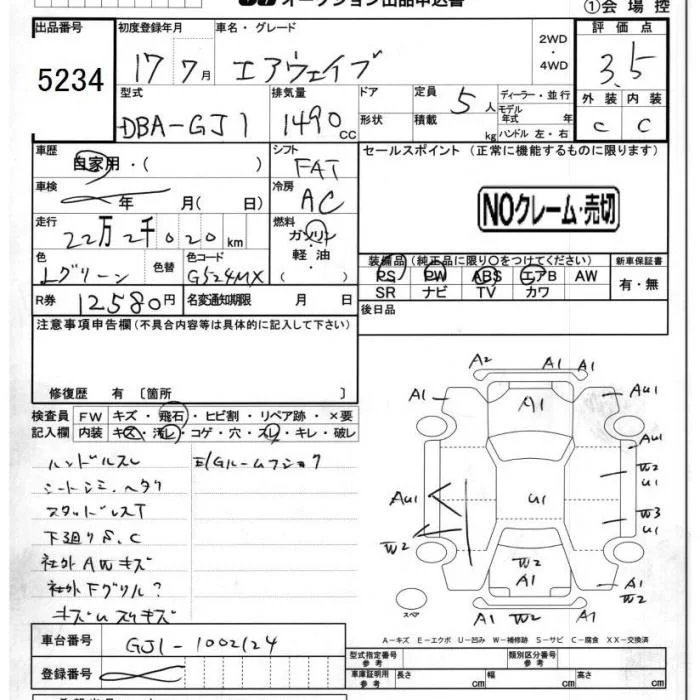 オークション出品申込書
①会場控
出品番号 初度登録年月 車名・グレード 2WD・4WD 評価点
5234 17 7月 エアウェイブ 3.5
型式 排気量 ドア 定員 5人 ディーラー・並行 外装 内装
DBA-GJ1 1490cc 形状 積載 kg モデル年式 年 ハンドル 左・右 C C
車歴 自家用・( ) シフト FAT セールスポイント (正常に機能するものに限ります)
車検 年 月( 日) 冷房 AC
NOクレーム・売切
走行 22万2千020km 燃料 ガソリン 軽油 ( )
装備品(純正品に限り○をつけてください) 新車保証書
色 Lグリーン 色替 色コード G524MX
PS PW ABS エアB AW 有・無
SR ナビ TV カワ
R券 12580円 名変通知期限 月 日
後日品
注意事項申告欄(不具合内容等は具体的に記入して下さい)
修復歴 有 〔箇所 〕
検査員 FW キズ・飛石・ヒビ割・リペア跡・×要
記入欄 内装 キズ・汚レ・コゲ・穴・スレ・キレ・破レ
ハンドルスレ E/Gルームフショク
シートシミ、ヘタリ
スタッドレスT
下廻りS、C
社外AWキズ
社外Fグリル?
A2 A1 A1
A1 A1 AU1
AU1
W2 U1
AU1 U1
W3 U1
W2
W2 A1
A1 W2
A1 W2 A1
スペア
A-キズ E-エクボ U-凹み W-補修跡 S-サビ C-腐食 XX-交換済
車台番号 GJ1-1002124
登録番号
型式指定番号 参考 類別区分番号 参考
車庫証明用 参考 長さ cm 幅 cm 高さ cm